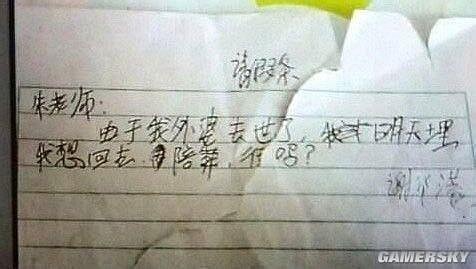 请假条
朱老师:
由于我外婆去世了,我 明天埋
我想回去 陪葬,行吗?
谢
GAMERSKY